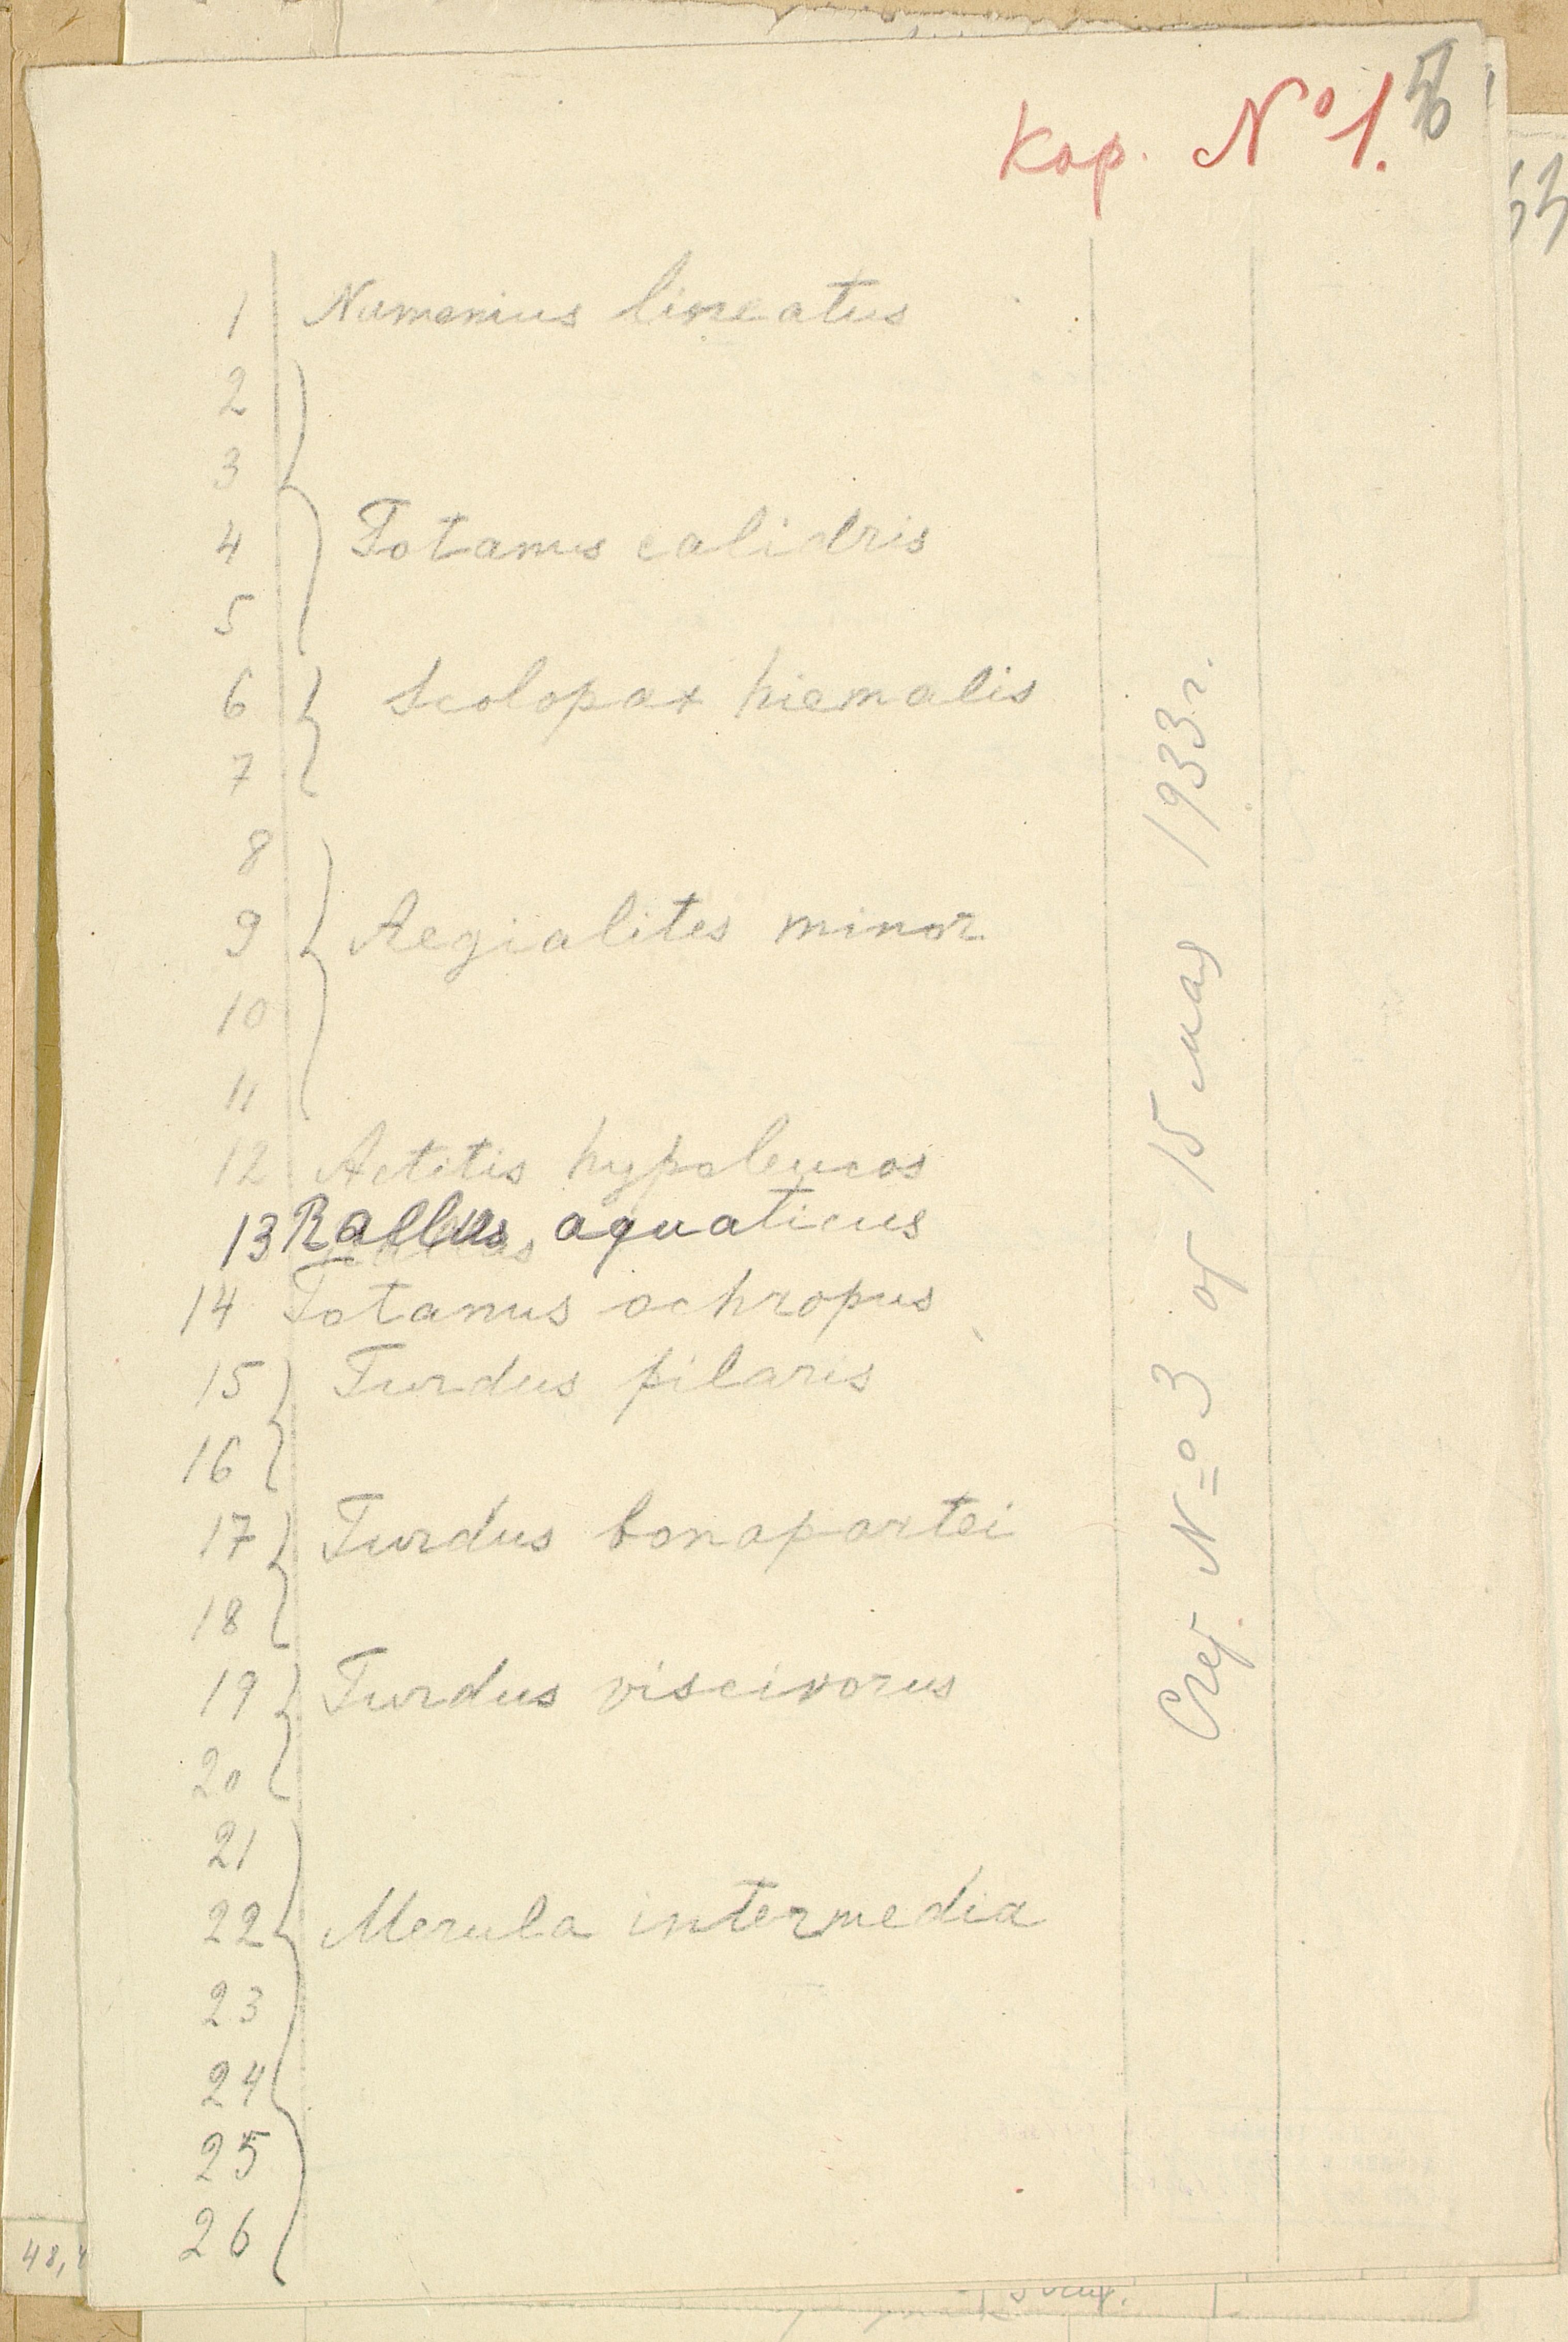 Кор. № 1.
1 Numenius lineatus
2
3
4 Totanus calidris
5
6 Scolopax hiemalis
7
8
9 Aegialites minor
10
11
12 Actitis hypoleucos
13 Rallus aquaticus
14 Totanus ochropus
15 Turdus pilaris
16
17 Turdus bonapartei
18
19 Turdus viscivorus
20
21
22 Merula intermedia
23
24
25
26
Счет № 3 от 15 мая 1933 г.